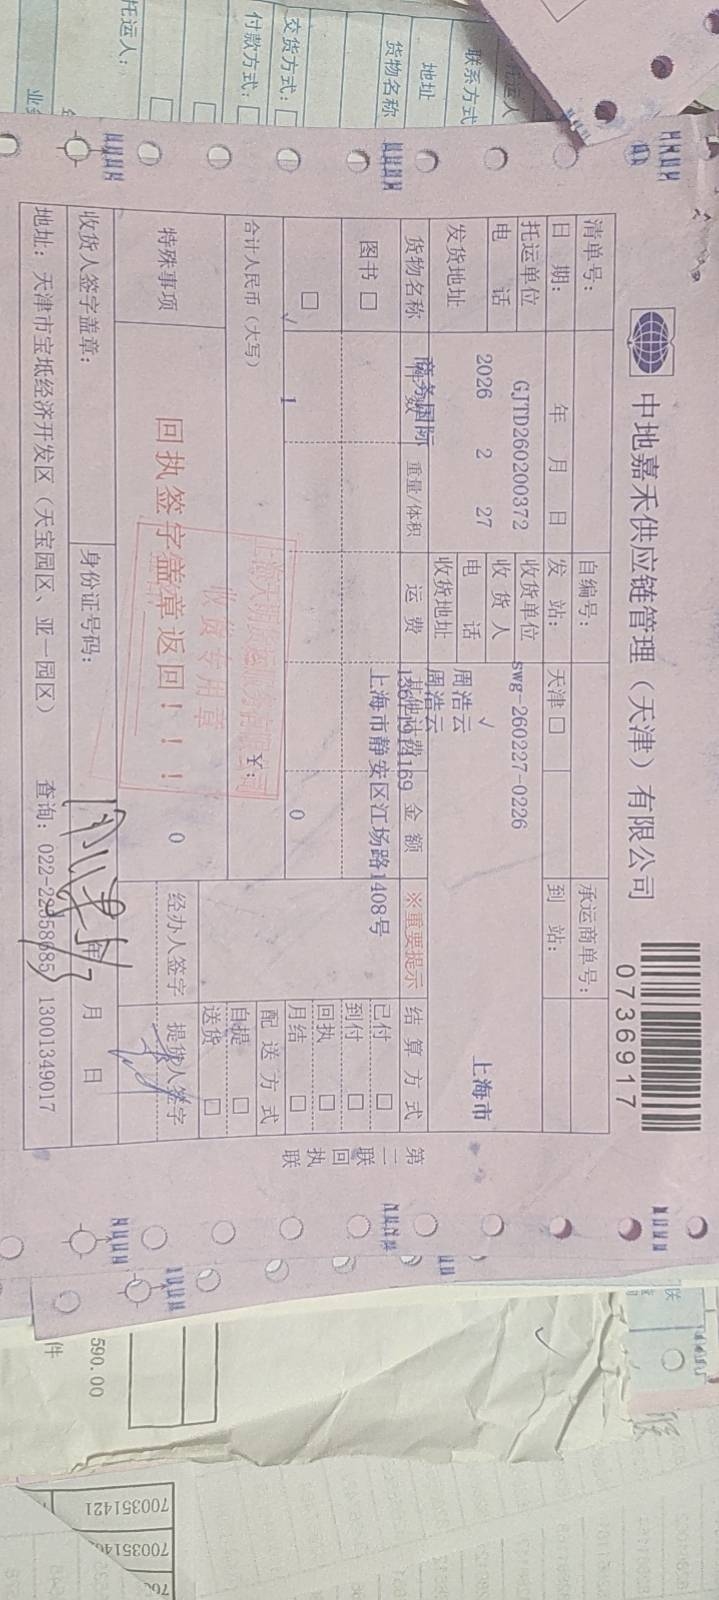 中地嘉禾供应链管理（天津）有限公司
0736917
清单号：
自编号：
承运商单号：
日 期： 年 月 日
发 站： 天津 □
到 站：
托运单位 GJTD260200372
收货单位 swg-260227-0226
电 话 2026 2 27
收 货 人
上海市
电 话 周浩云
发货地址
收货地址 周浩云
商务国际
货物名称 件数 重量/体积 运 费 其他计费 金 额 ※重要提示 结 算 方 式
上海市静安区江场路1408号
图书 □
已付 □
到付 □
回执 □
月结 □
□ 1 0
合计人民币（大写） ¥：
配 送 方 式
自提 □
送货 □
特殊事项 回执签字盖章返回！！！ 0
收货专用章
经办人签字
提货人签字
收货人签字盖章： 身份证号码： 年 月 日
地址：天津市宝坻经济开发区（天宝园区、亚一园区） 查询：022-22958685 13001349017
第二联 回执联
托运人：
付款方式：□
交货方式：□
货物名称
地址
联系方式
托运人
590.00
件
700351421